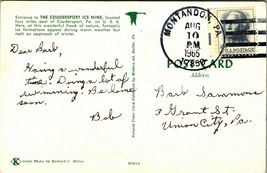 Entrance to THE COUDERSPORT ICE MINE, located
four miles east of Coudersport, Pa. on U. S. 6.
Here, at this wonderful freak of nature, fantastic
ice formations appear during warm weather but
melt on approach of winter.
Dear Barb,
Having a wonderful
time! Doing a lot of
swimming. Be home
soon.
Bob
MONTANDON, PA.
AUG
10
PM
1965
17850
U.S. POSTAGE
POST CARD
Address
Barb Sammons
3 Grant St.
Union City, Pa.
K
Color Photo by Richard C. Miller